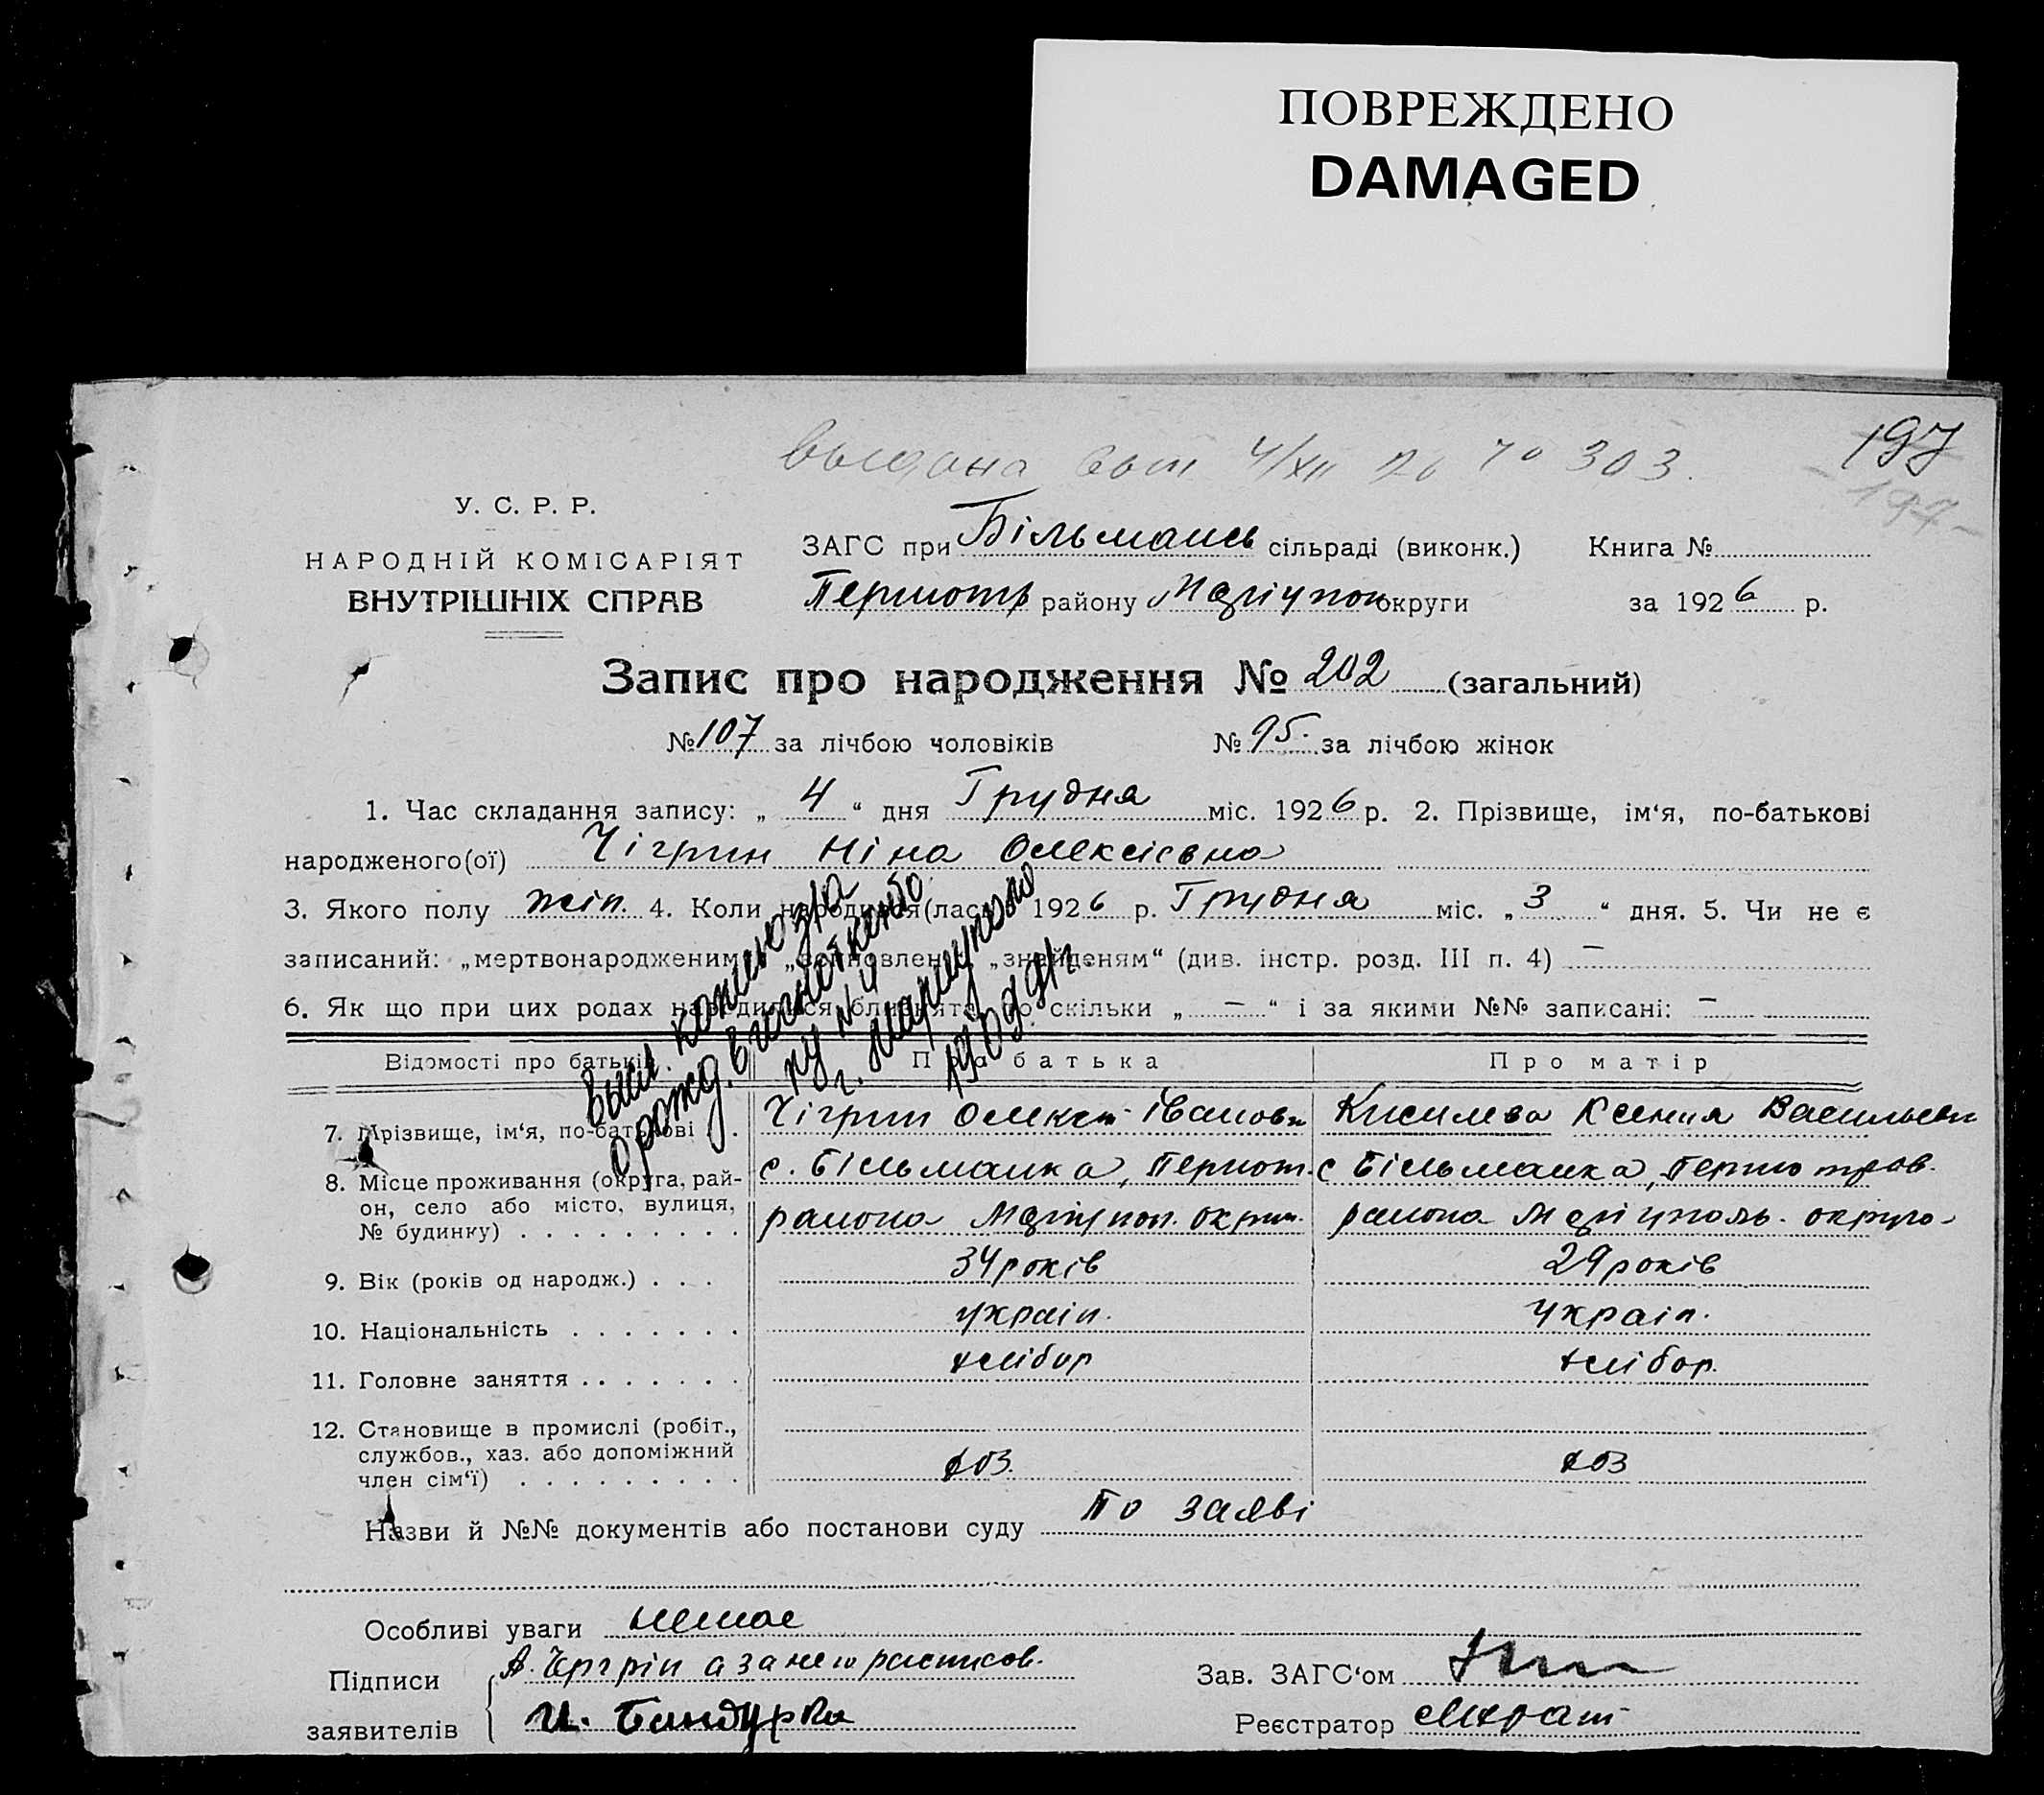 ПОВРЕЖДЕНО
DAMAGED
выдана 4/XII 26 № 303.
197
197
У. С. Р. Р.
НАРОДНІЙ КОМІСАРІЯТ
ВНУТРІШНІХ СПРАВ
ЗАГС при Більманск сільраді (виконк.) Книга №
Першотр району Маріупол округи за 1926 р.
Запис про народження № 202 (загальний)
№ 107 за лічбою чоловіків № 95. за лічбою жінок
1. Час складання запису: „ 4 “ дня Грудня міс. 1926 р. 2. Прізвище, ім‘я, по-батькові
народженого(ої) Чігрин Ніна Олексієвна
3. Якого полу жін. 4. Коли народився(лась) 1926 р. Грудня міс. „ 3 “ дня. 5. Чи не є
записаний: „мертвонародженим“ „знайденям“ (див. інстр. розд. III п. 4) —
6. Як що при цих родах народилися близнята, то скільки „ — “ і за якими №№ записані: —
г. Мариуполь
Відомості про батьків. Про батька Про матір
7. Прізвище, ім‘я, по-батькові . . Чігрин Олексій Іванов Кисилева Ксения Васильевн
8. Місце проживання (округа, район, село або місто, вулиця, № будинку) . . . . . . . . . с. Більманка, Першот. района Маріупол. округи. с Більманка, Першотров. района Маріуполь. округа
9. Вік (років од народж.) . . . 34 років 29 років
10. Національність . . . . . . . україн. україн.
11. Головне заняття . . . . . . . хлібор хлібор.
12. Становище в промислі (робіт., службов., хаз. або допоміжний член сім‘ї) . . . . . . . . . хоз. хоз
Назви й №№ документів або постанови суду По заяві
Особливі уваги немає
Підписи А. Чігрін а за него росписов.
заявителів И. Бандурка
Зав. ЗАГС‘ом
Реєстратор